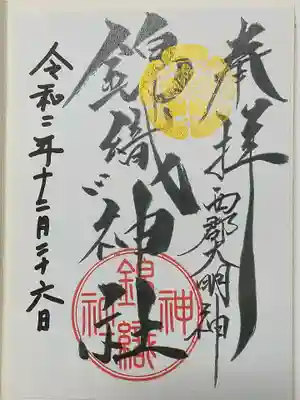 奉拝
西郡大明神
錦織神社
令和二年十二月二十六日
錦織神社